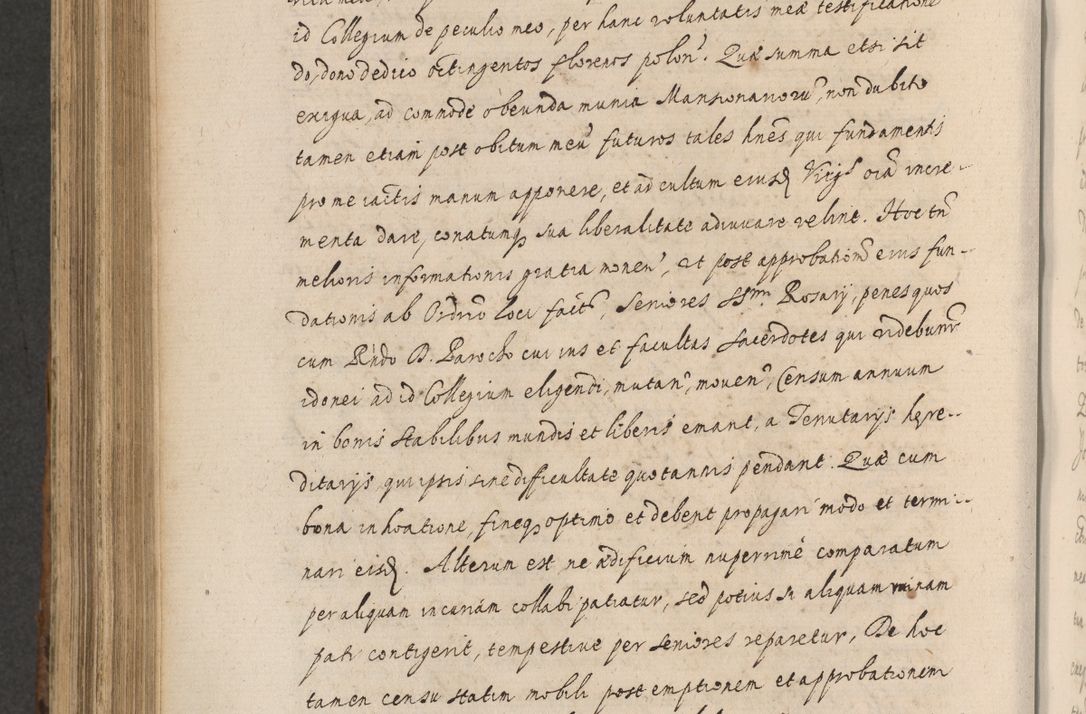 id Collegium de peculio meo, per hanc voluntatis meæ testificatione
do, dono dedico octingentos florenos polon. Quæ summa etsi sit
exigua, ad commode obeunda munia Mansionarioru, non dubito
tamen etiam post obitum meu futuros tales hnes, qui fundamentis
pro me iactis manum apponere, et ad cultum eiusd Virgs oia incre-
menta dare, conatumq sua liberalitate adiuvare velint. Hoc tn
melioris informationis gratia monen, ut post approbatione eius fun-
dationis ab Ordrio loci fact, Seniores SSmi Rosarij, penes quos
cum Rndo D. Parocho cui ius et facultas Sacerdotes qui videbunr
idonei ad id Collegium eligendi, mutan, moven, Censum annuum
in bonis stabilibus mundis et liberis emant, a Tenutarijs hære-
ditarijs, qui ipsis sine dificultate quotannis pendant. Quæ cum
bona inhoatione, fineq optimo et debent propagari modo et termi-
nari eisd. Alterum est ne ædificium nuperrime comparatum
per aliquam incuriam collabi patiatur, sed potius si aliquam ruinam
pati contigerit, tempestive per seniores reparetur, De hoc
tamen censu statim nobili post emptionem et approbationem